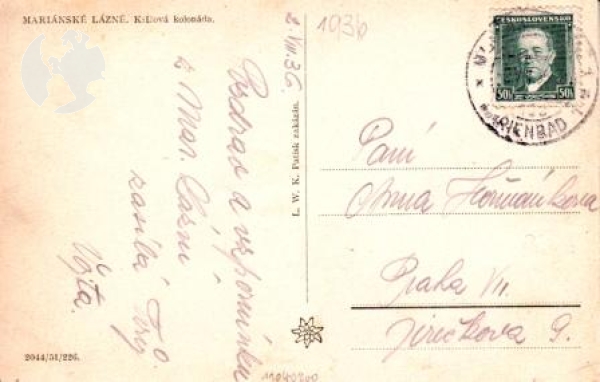 MARIÁNSKÉ LÁZNĚ. Křížová kolonáda.
2. VIII. 36.
Pozdrav a vzpomínku
z Mar. Lázní
zasílá Tvůj
Vojta.
2044/51/226.
L. W. K. Patisk zakázán.
11040200
1936
ČESKOSLOVENSKO
50h 50h
MARIENBAD 1
Paní
Praha VII.
Jirečkova 9.